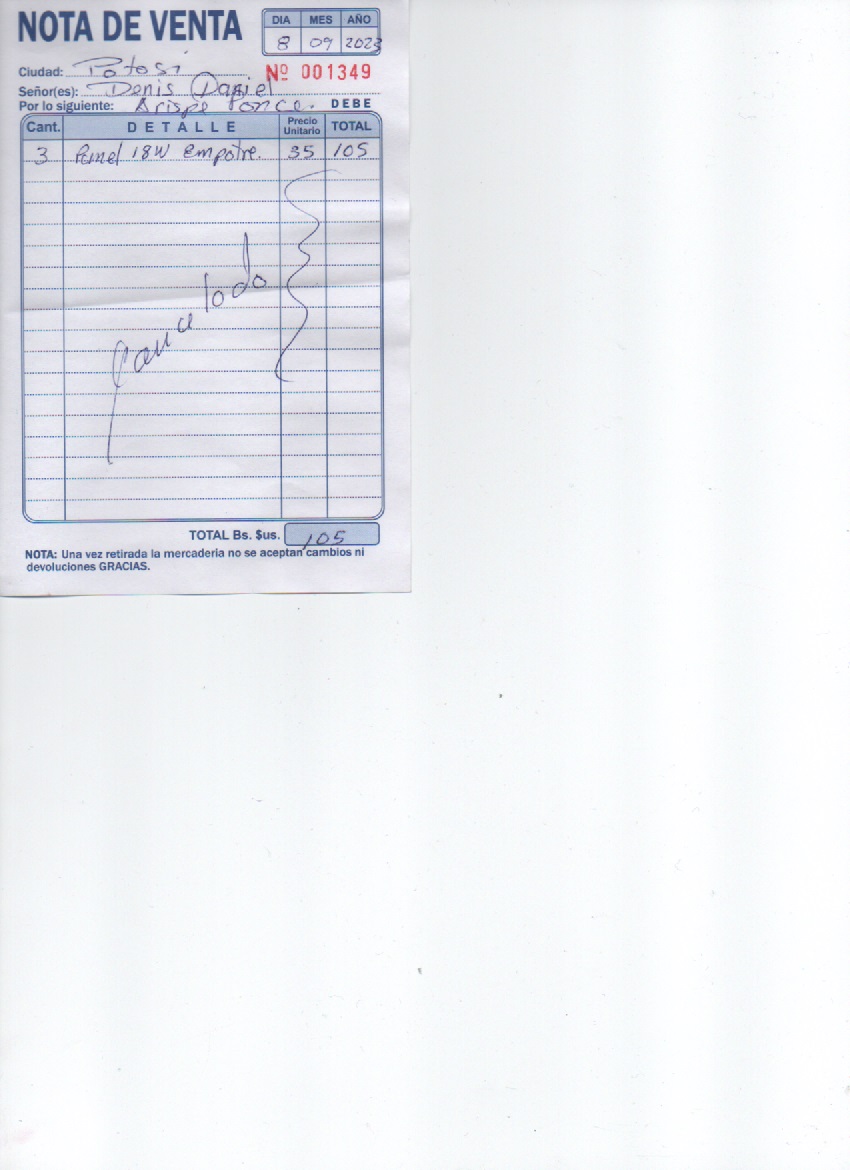 NOTA DE VENTA
DIA MES AÑO
8 09 2023
Ciudad: Potosí
Nº 001349
Señor(es): Denis Daniel
Por lo siguiente: Arispe Ponce. DEBE
Cant. DETALLE Precio Unitario TOTAL
3 Panel 18W Empotre. 35 105
Cancelado
TOTAL Bs. $us. 105
NOTA: Una vez retirada la mercaderia no se aceptan cambios ni
devoluciones GRACIAS.